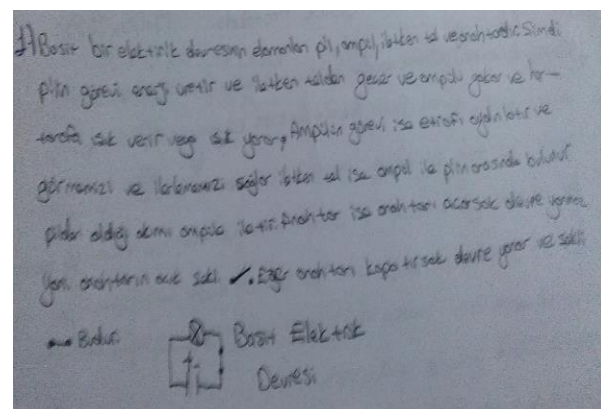 1) Basit bir elektirik devresinin elemanları pil, ampul, iletken tel ve anahtardır. Şimdi
pilin görevi enerji üretir ve iletken telden geçer ve ampulu yakar ve her-
tarafa ışık verir veya ışık yayar. Ampulün görevi ise etrafı aydınlatır ve
görmemizi ve ilerlememizi sağlar iletken tel ise ampul ile pilin arasında bulunur
pilden aldığı akımı ampule iletir. Anahtar ise anahtarı açarsak devre yanmaz
Yani anahtarın açık şekli . Eğer anahtarı kapatırsak devre yanar ve şekli
Budur.
Basit Elektrik
Devresi